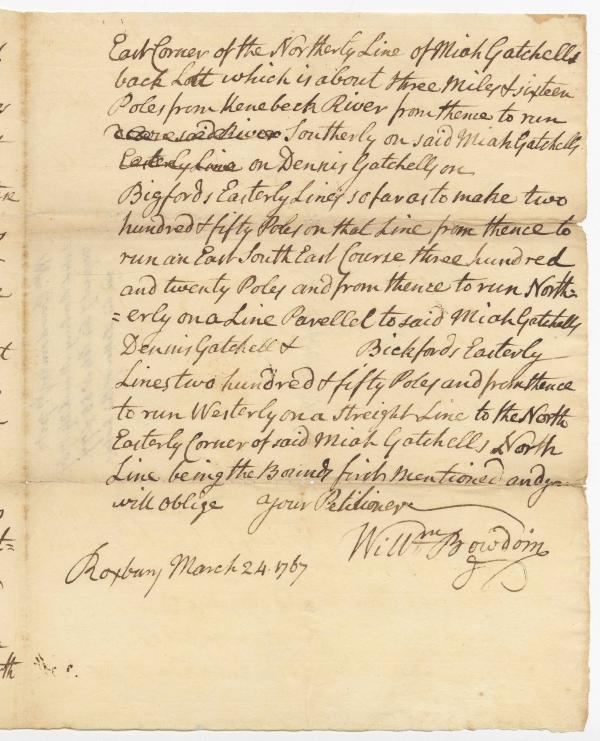 East Corner of the Northerly Line of Miah Gatchells
back Lott which is about three Miles & sixteen
Poles from Kenebeck River from thence to run
said River Southerly on said Miah Gatchells
Easterly Line on Dennis Gatchells on
Bigfords Easterly Lines so far as to make two
hundred & fifty Poles on that Line from thence to
run an East South East Course three hundred
and twenty Poles and from thence to run North=
=erly on a Line Parellel to said Miah Gatchells
Dennis Gatchell & Bickfords Easterly
Lines two hundred & fifty Poles and from thence
to run Westerly on a Streight Line to the North
Easterly Corner of said Miah Gatchells North
Line being the Bounds first Mentioned and you
will oblige your Petitioner
Willm Bowdoin
Roxbury March 24. 1767